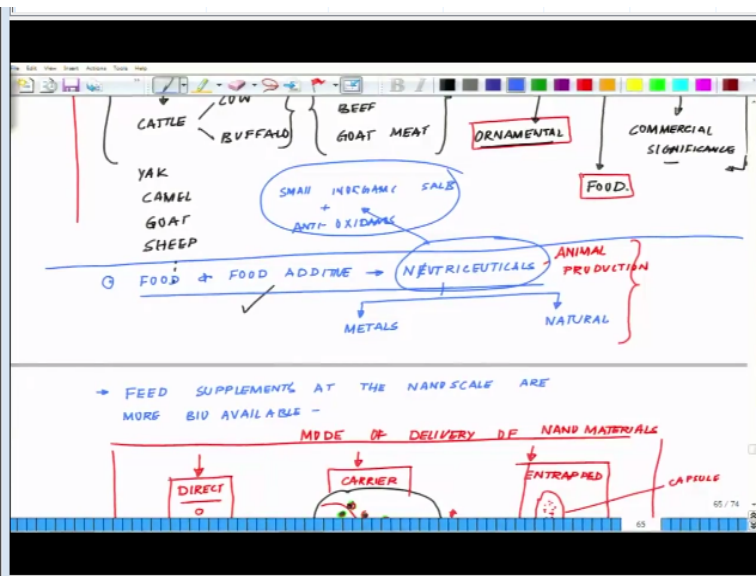 File Edit View Insert Actions Tools Help
COW
CATTLE
BUFFALO
BEEF
GOAT MEAT
ORNAMENTAL
COMMERCIAL
SIGNIFICANCE
FOOD.
YAK
CAMEL
GOAT
SHEEP
SMALL INORGANIC SALB
+
ANTI-OXIDANS
FOOD & FOOD ADDITIVE → NEUTRICEUTICALS
ANIMAL
PRODUCTION
METALS
NATURAL
→ FEED SUPPLEMENTS AT THE NANOSCALE ARE
MORE BIO AVAILABLE -
MODE OF DELIVERY OF NANO MATERIALS
DIRECT
CARRIER
ENTRAPPED
CAPSULE
65 / 74
65